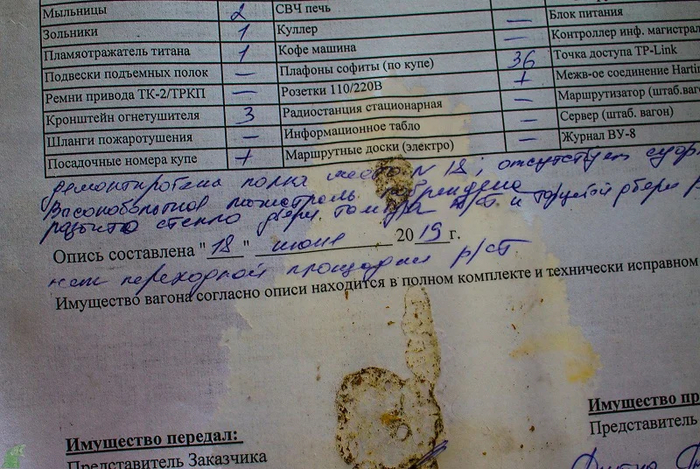 Мыльницы 2 СВЧ печь Блок питания
Зольники 1 Куллер — Контроллер инф. магистрал
Пламяотражатель титана 1 Кофе машина — Точка доступа TP-Link
Подвески подъемных полок — Плафоны софиты (по купе) 36 Межв-ое соединение Hartin
Ремни привода ТК-2/ТРКП — Розетки 110/220В + Маршрутизатор (штаб.ваго
Кронштейн огнетушителя 3 Радиостанция стационарная — Сервер (штаб. вагон)
Шланги пожаротушения — Информационное табло — Журнал ВУ-8
Посадочные номера купе + Маршрутные доски (электро) —
полка место N 18, отсутствует
повреждена
стекло двери тамбура р/ст. и торцевой двери
Опись составлена "18" июня 2019г.
нет переходной площадки р/ст.
Имущество вагона согласно описи находится в полном комплекте и технически исправном
Имущество передал: Имущество пр
Представитель Заказчика Представитель